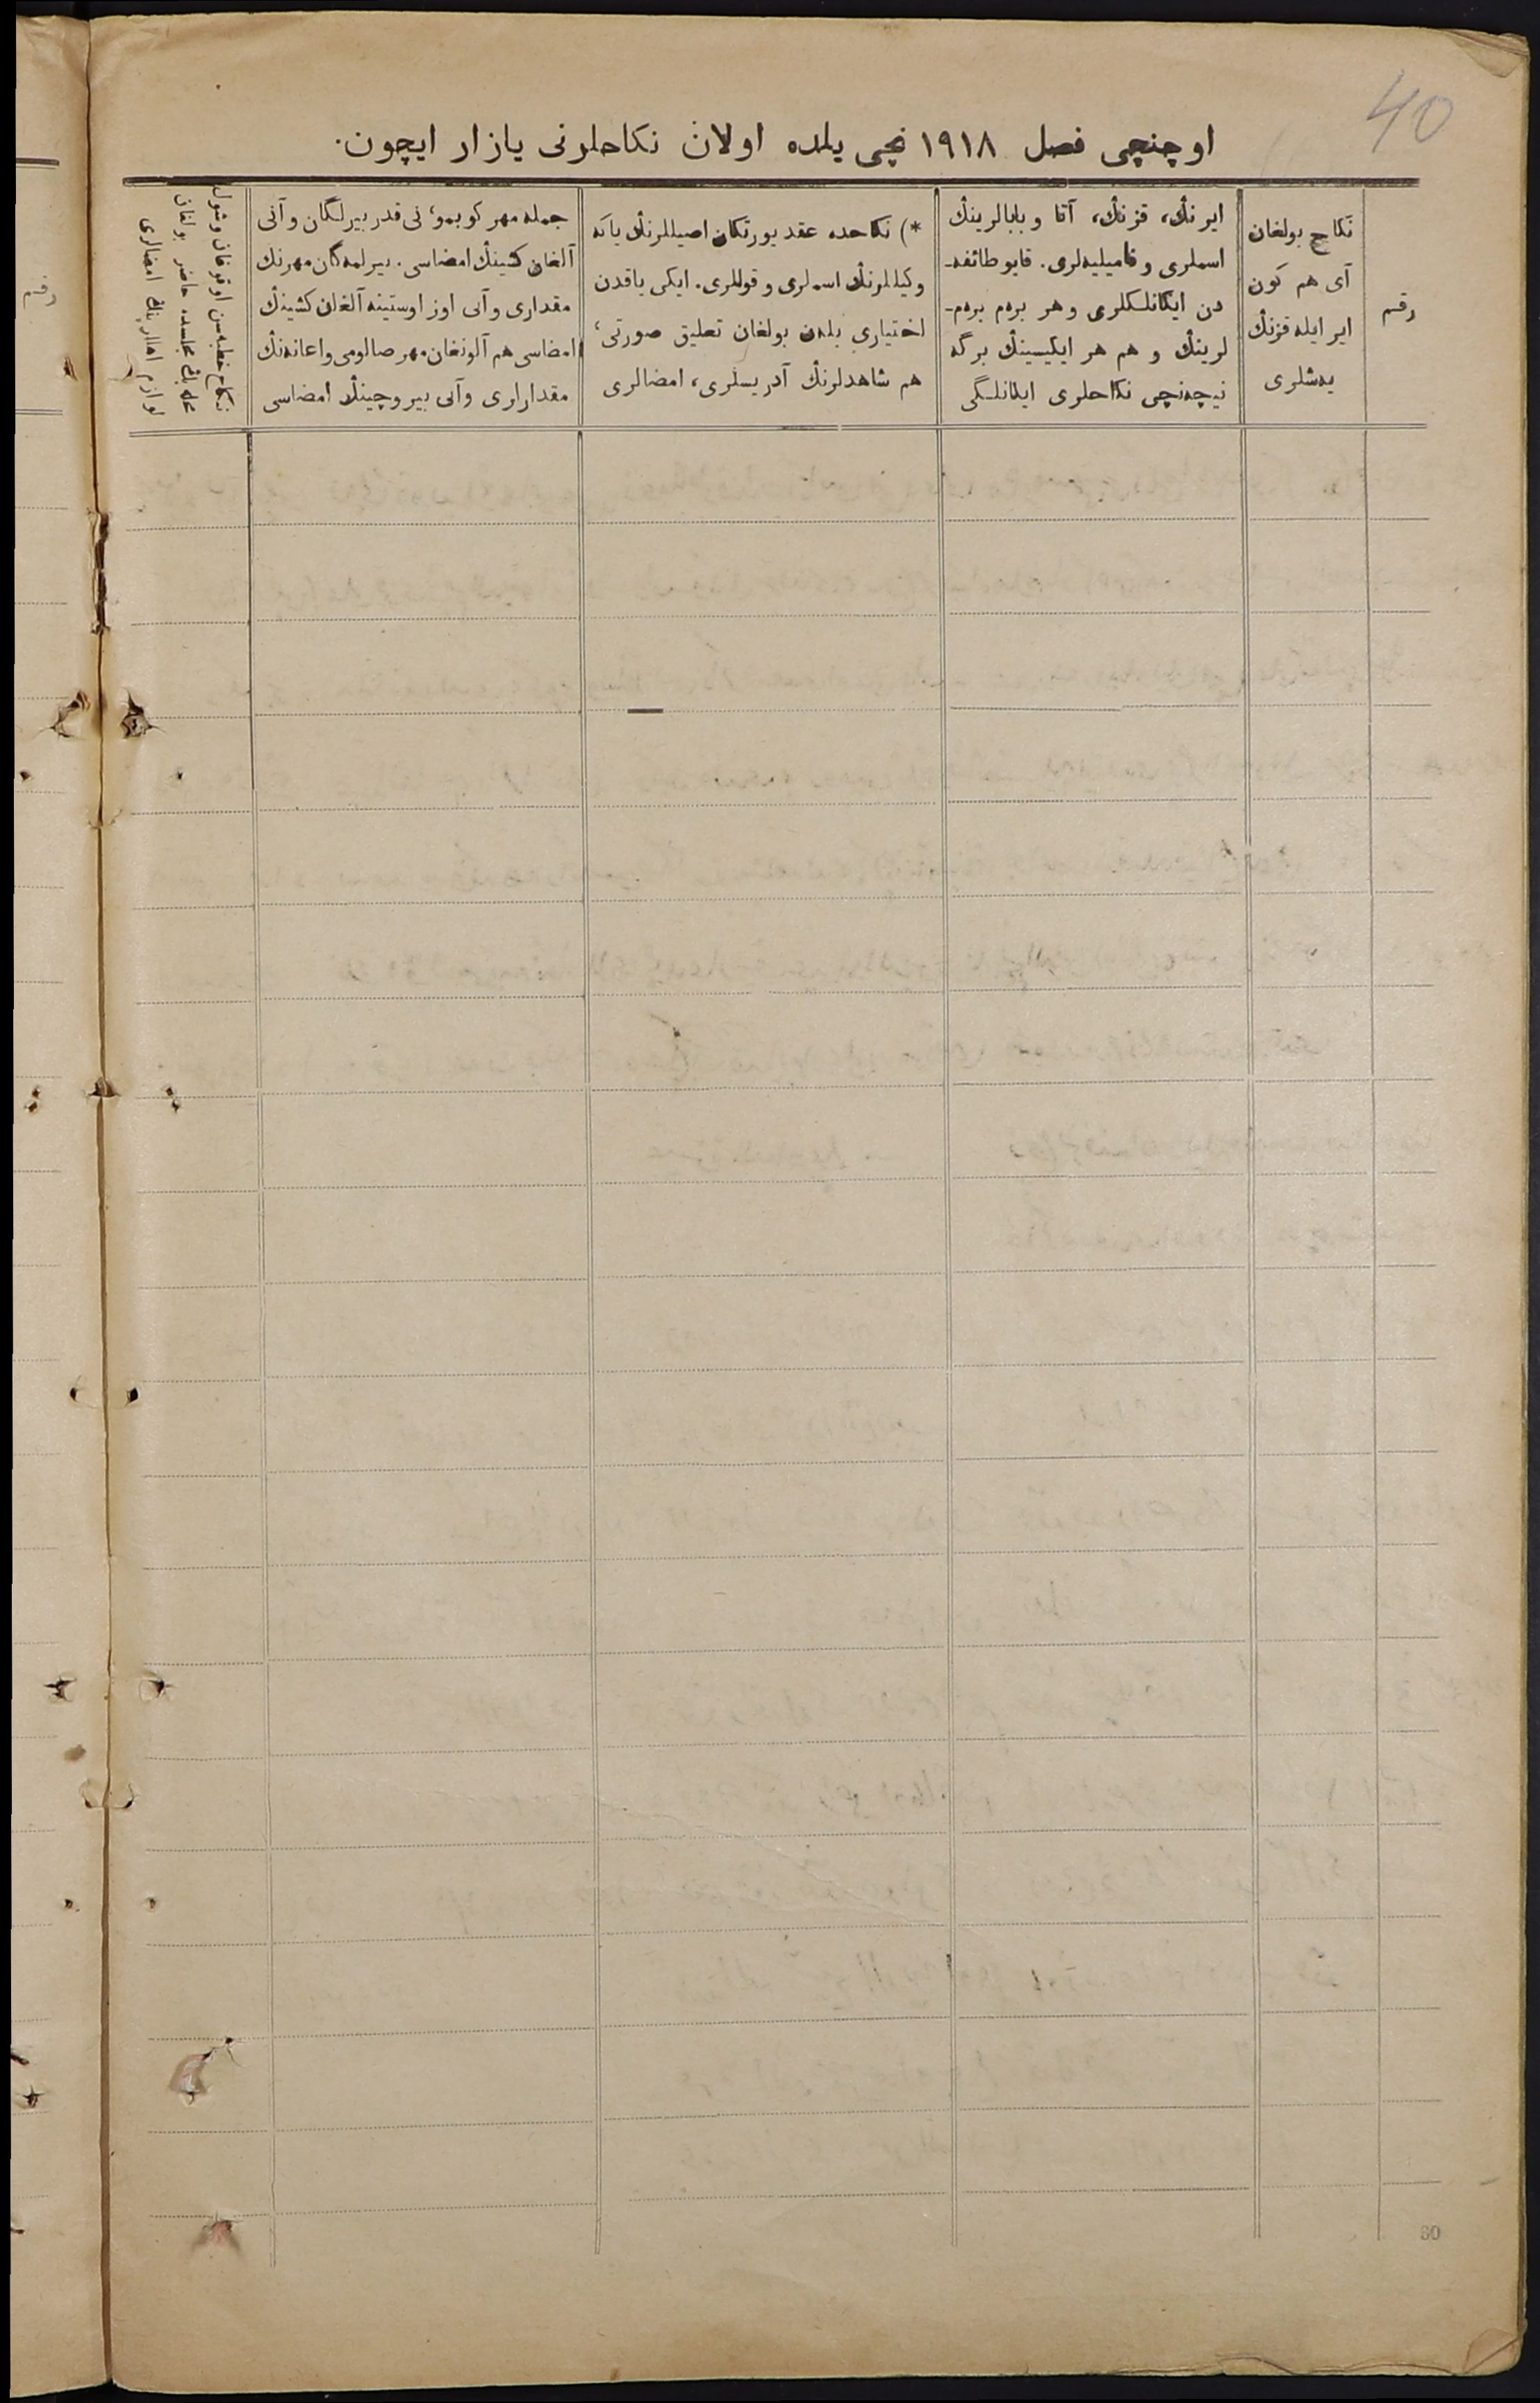 40
اوچنچی فصل ١٩١٨ نچی یلده اولان نکاحلرنی یازار ایچون.
رقم
نکاح بولغان
آی هم کون
ایر ایله قزنڭ
یەشلری
ایرنڭ، قزنڭ، آتا وبابالرینڭ
اسملری وفامیلیەلری. قایو طائفە-
دن ایکانلکلری وهر برەم برەم-
لرینڭ و هم هر ایکیسینڭ برگە
نیچەنچی نکاحلری ایکانلگی
*) نکاحده عقد یورتکان اصیللرنڭ یاکە
وکیللرنڭ اسملری و قوللری. ایکی یاقدن
اختیاری بلەن بولغان تعلیق صورتی،
هم شاهدلرنڭ آدریسلری، امضالری
جمله مهر کوبمو، نی قدر بیرلگان و آنی
آلغان کشینڭ امضاسی. بیرلمەگان مهرنڭ
مقداری و آنی اوز اوستینه آلغان کشینڭ
امضاسی هم آلونغان مهر صالومی واعانەنڭ
مقدارلری وآنی بیروچینڭ امضاسی
نکاح خطبەسن اوقوغان وشول
مجلسده حاضر بولغان
امضالری
رقم
80